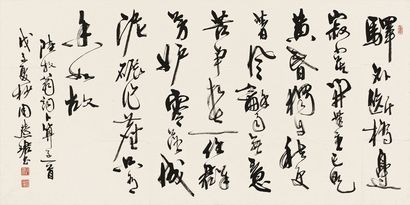 驛外斷橋邊
寂寞開無主已是
黃昏獨自愁更
著風和雨無意
苦爭春一任群
芳妒零落成
泥碾作塵只有
香如故
陸放翁詞卜算子一首
戊子夏